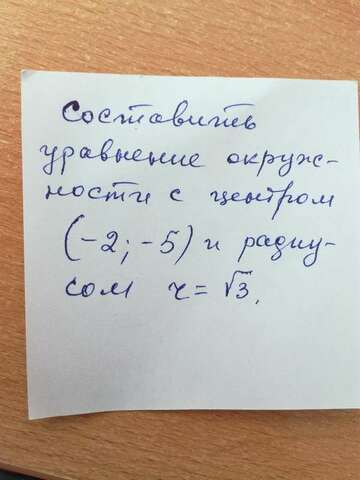 Составить
уравнение окруж-
ности с центром
(-2; -5) и радиу-
сом r = √3.